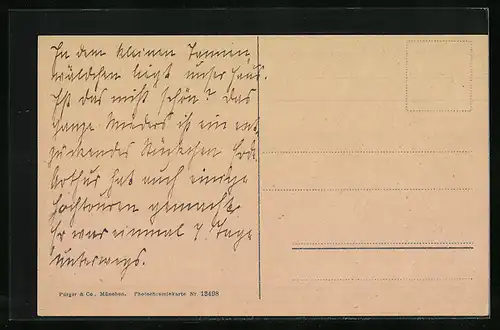 In dem kleinen Tannen
wäldchen liegt unser Haus.
Ist das nicht schön? Das
ganze Nieders ist ein ent
zückendes Stückchen Erde.
Arthur hat auch einige
Hochtouren gemacht.
Er war einmal 7 Tage
unterwegs.
Pürger & Co., München. Photochromiekarte Nr. 13498